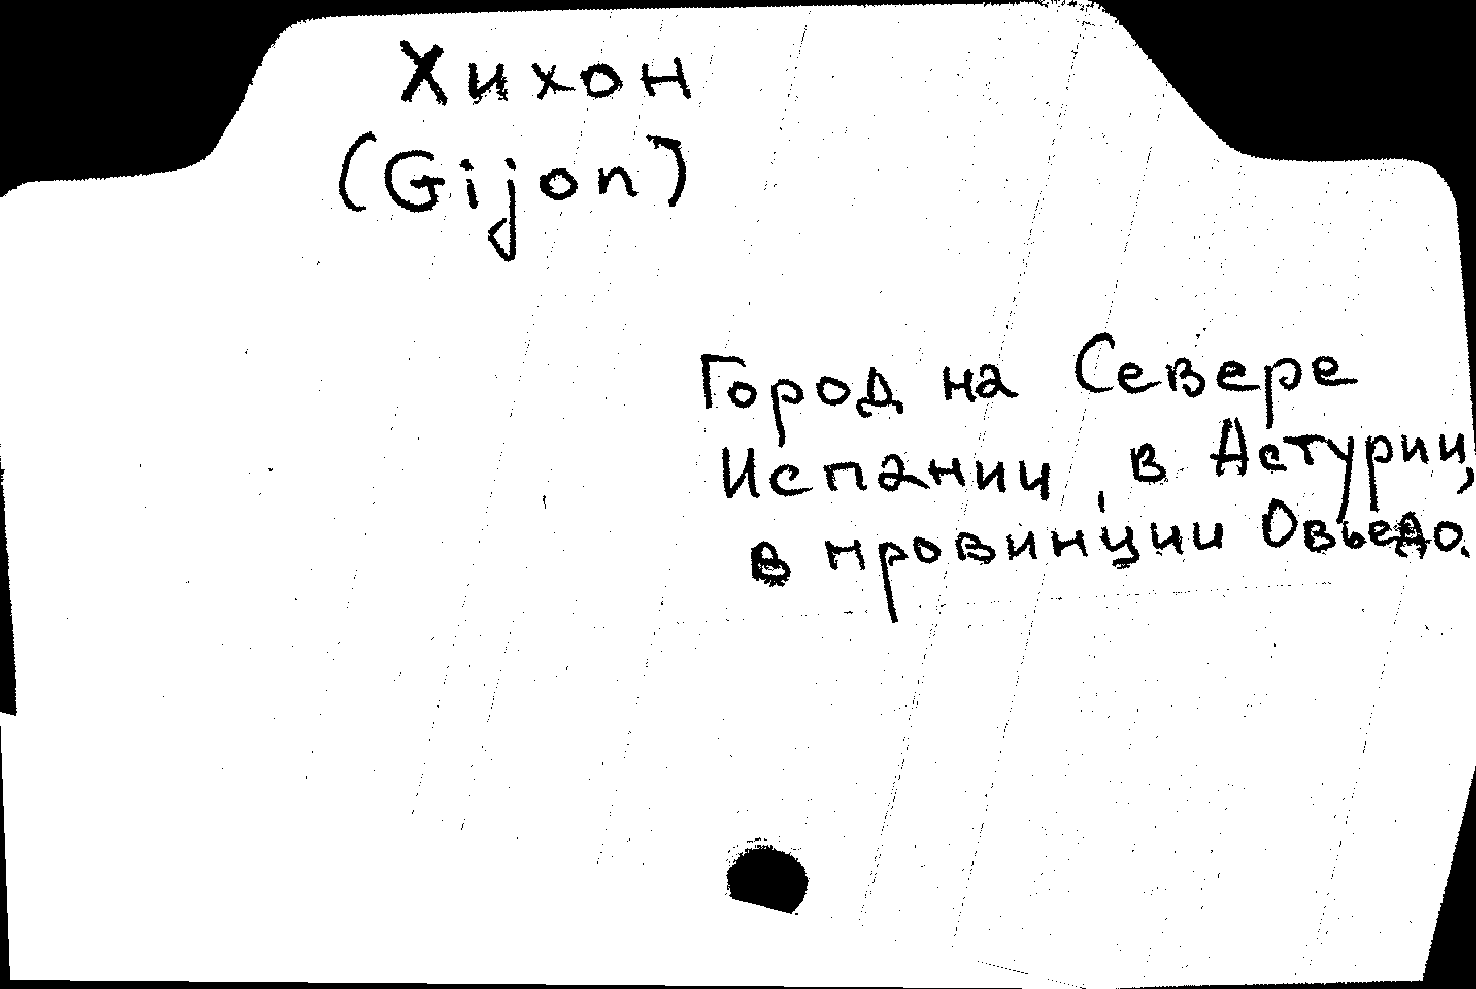 Хихон
(Gijon)
Город на Севере
Испании, в Астурии,
в провинции Овьедо.